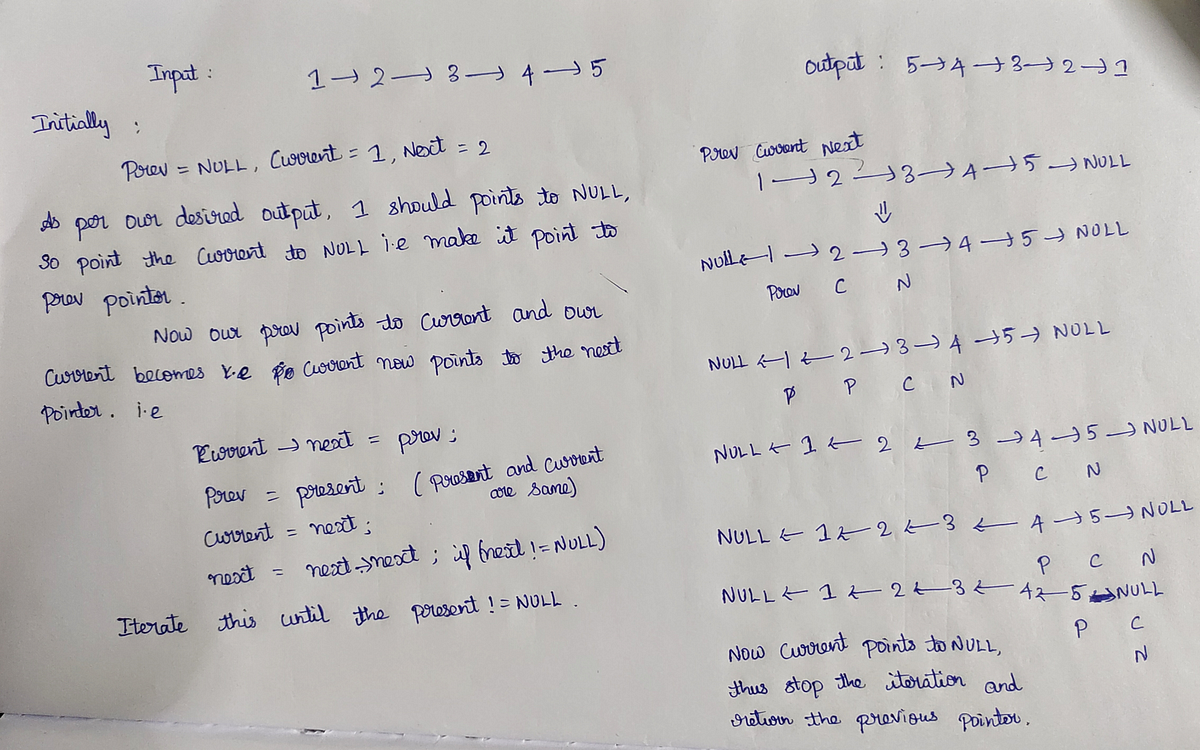 Input : 1 → 2 → 3 → 4 → 5
Initially :
Prev = NULL, Current = 1, Next = 2
As per our desired output, 1 should points to NULL,
so point the Current to NULL i.e make it point to
prev pointer.
Now our prev points to Current and our
Current becomes i.e Current now points to the next
pointer. i.e
Current → next = prev ;
Prev = present ; (Present and Current
are same)
Current = next ;
next = next→next ; if (next != NULL)
Iterate this until the present != NULL .
Output : 5→4→3→2→1
Prev Current Next
1 → 2 → 3 → 4 → 5 → NULL
⇓
NULL ← 1 → 2 → 3 → 4 → 5 → NULL
Prev C N
NULL ← 1 ← 2 → 3 → 4 → 5 → NULL
P P C N
NULL ← 1 ← 2 ← 3 → 4 → 5 → NULL
P C N
NULL ← 1 ← 2 ← 3 ← 4 → 5 → NULL
P C N
NULL ← 1 ← 2 ← 3 ← 4 ← 5 → NULL
P C
N
Now Current points to NULL,
thus stop the iteration and
return the previous pointer.